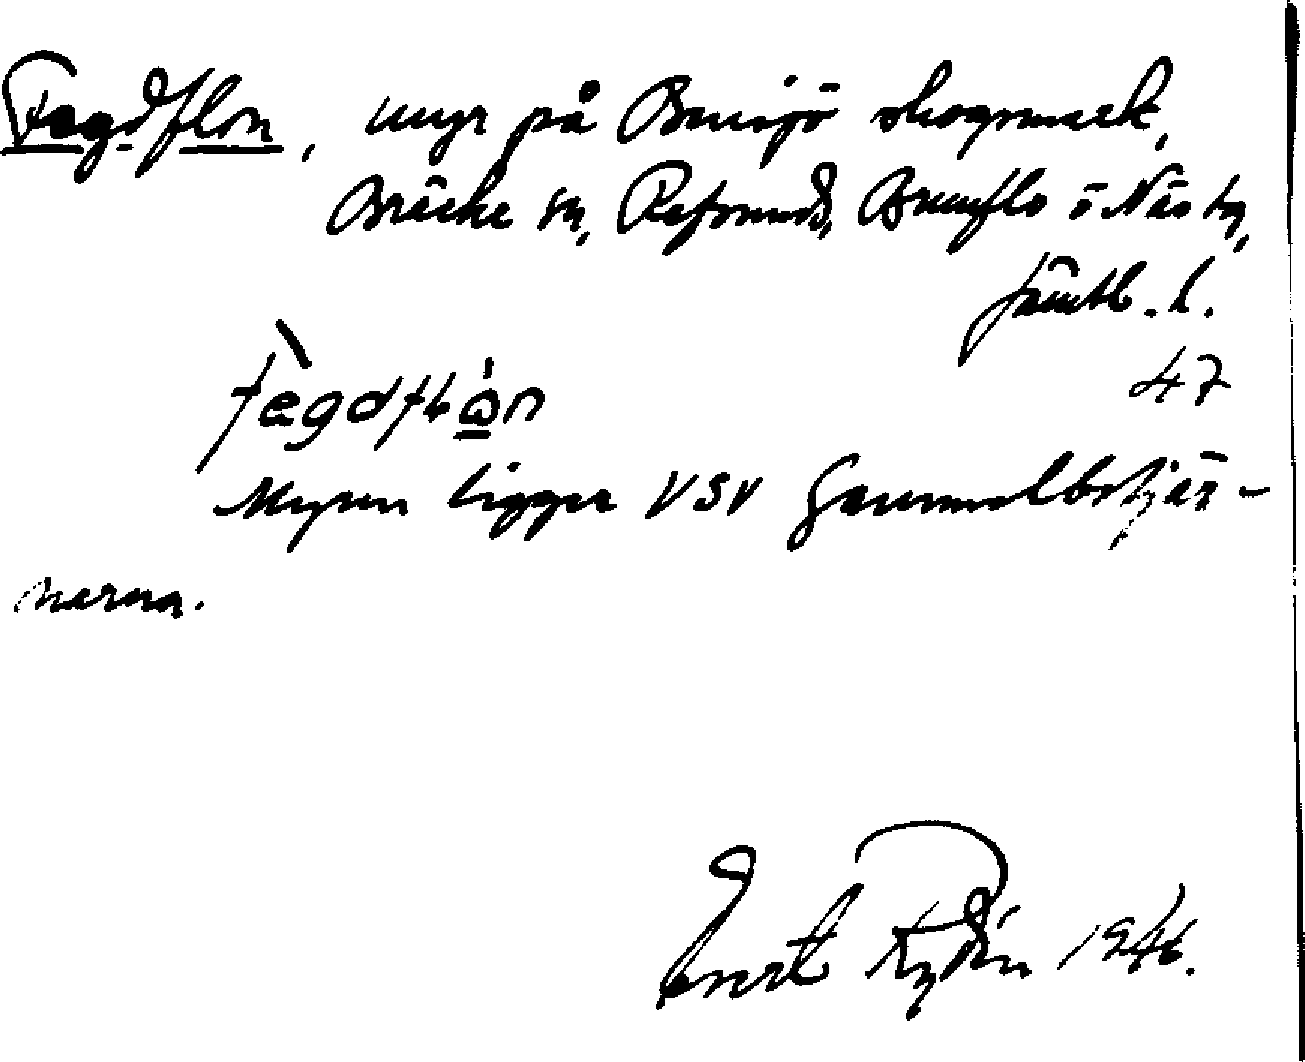 Fegdflon, myr på Bensjö skogsmark,
Bräcke sn, Refsunds, Brunflo o Näs tg,
Jämtl. l.
47
fègdflon
Myren ligger VSV Gammalbotjär-
narna.
Evert Rydén 1946.